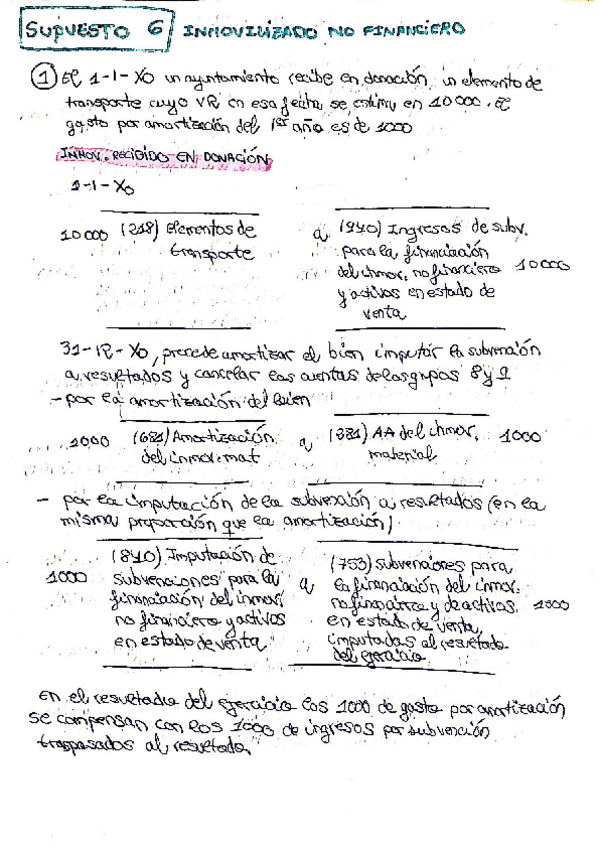 SUPUESTO 6 INMOVILIZADO NO FINANCIERO
① El 1-1-X0 un ayuntamiento recibe en donación un elemento de
transporte cuyo VR en esa fecha se estima en 10000. El
gasto por amortización del 1er año es de 1000
INMOV. RECIBIDO EN DONACIÓN
1-1-X0
10000 (218) Elementos de transporte a (940) Ingresos de subv.
para la financiación
del inmov. no financiero 10000
y activos en estado de
venta
31-12-X0, procede amortizar el bien imputar la subvención
a resultados y cancelar las cuentas de los grupos 8 y 9
- por la amortización del bien
1000 (681) Amortización a (281) AA del inmov. 1000
del inmov. mat material
- por la imputación de la subvención a resultados (en la
misma proporción que la amortización)
(840) Imputación de (753) subvenciones para
1000 subvenciones para la a la financiación del inmov.
financiación del inmov. no financiero y de activos 1000
no financiero y activos en estado de venta,
en estado de venta imputadas al resultado
del ejercicio
En el resultado del ejercicio los 1000 de gasto por amortización
se compensan con los 1000 de ingresos por subvención
traspasados al resultado.